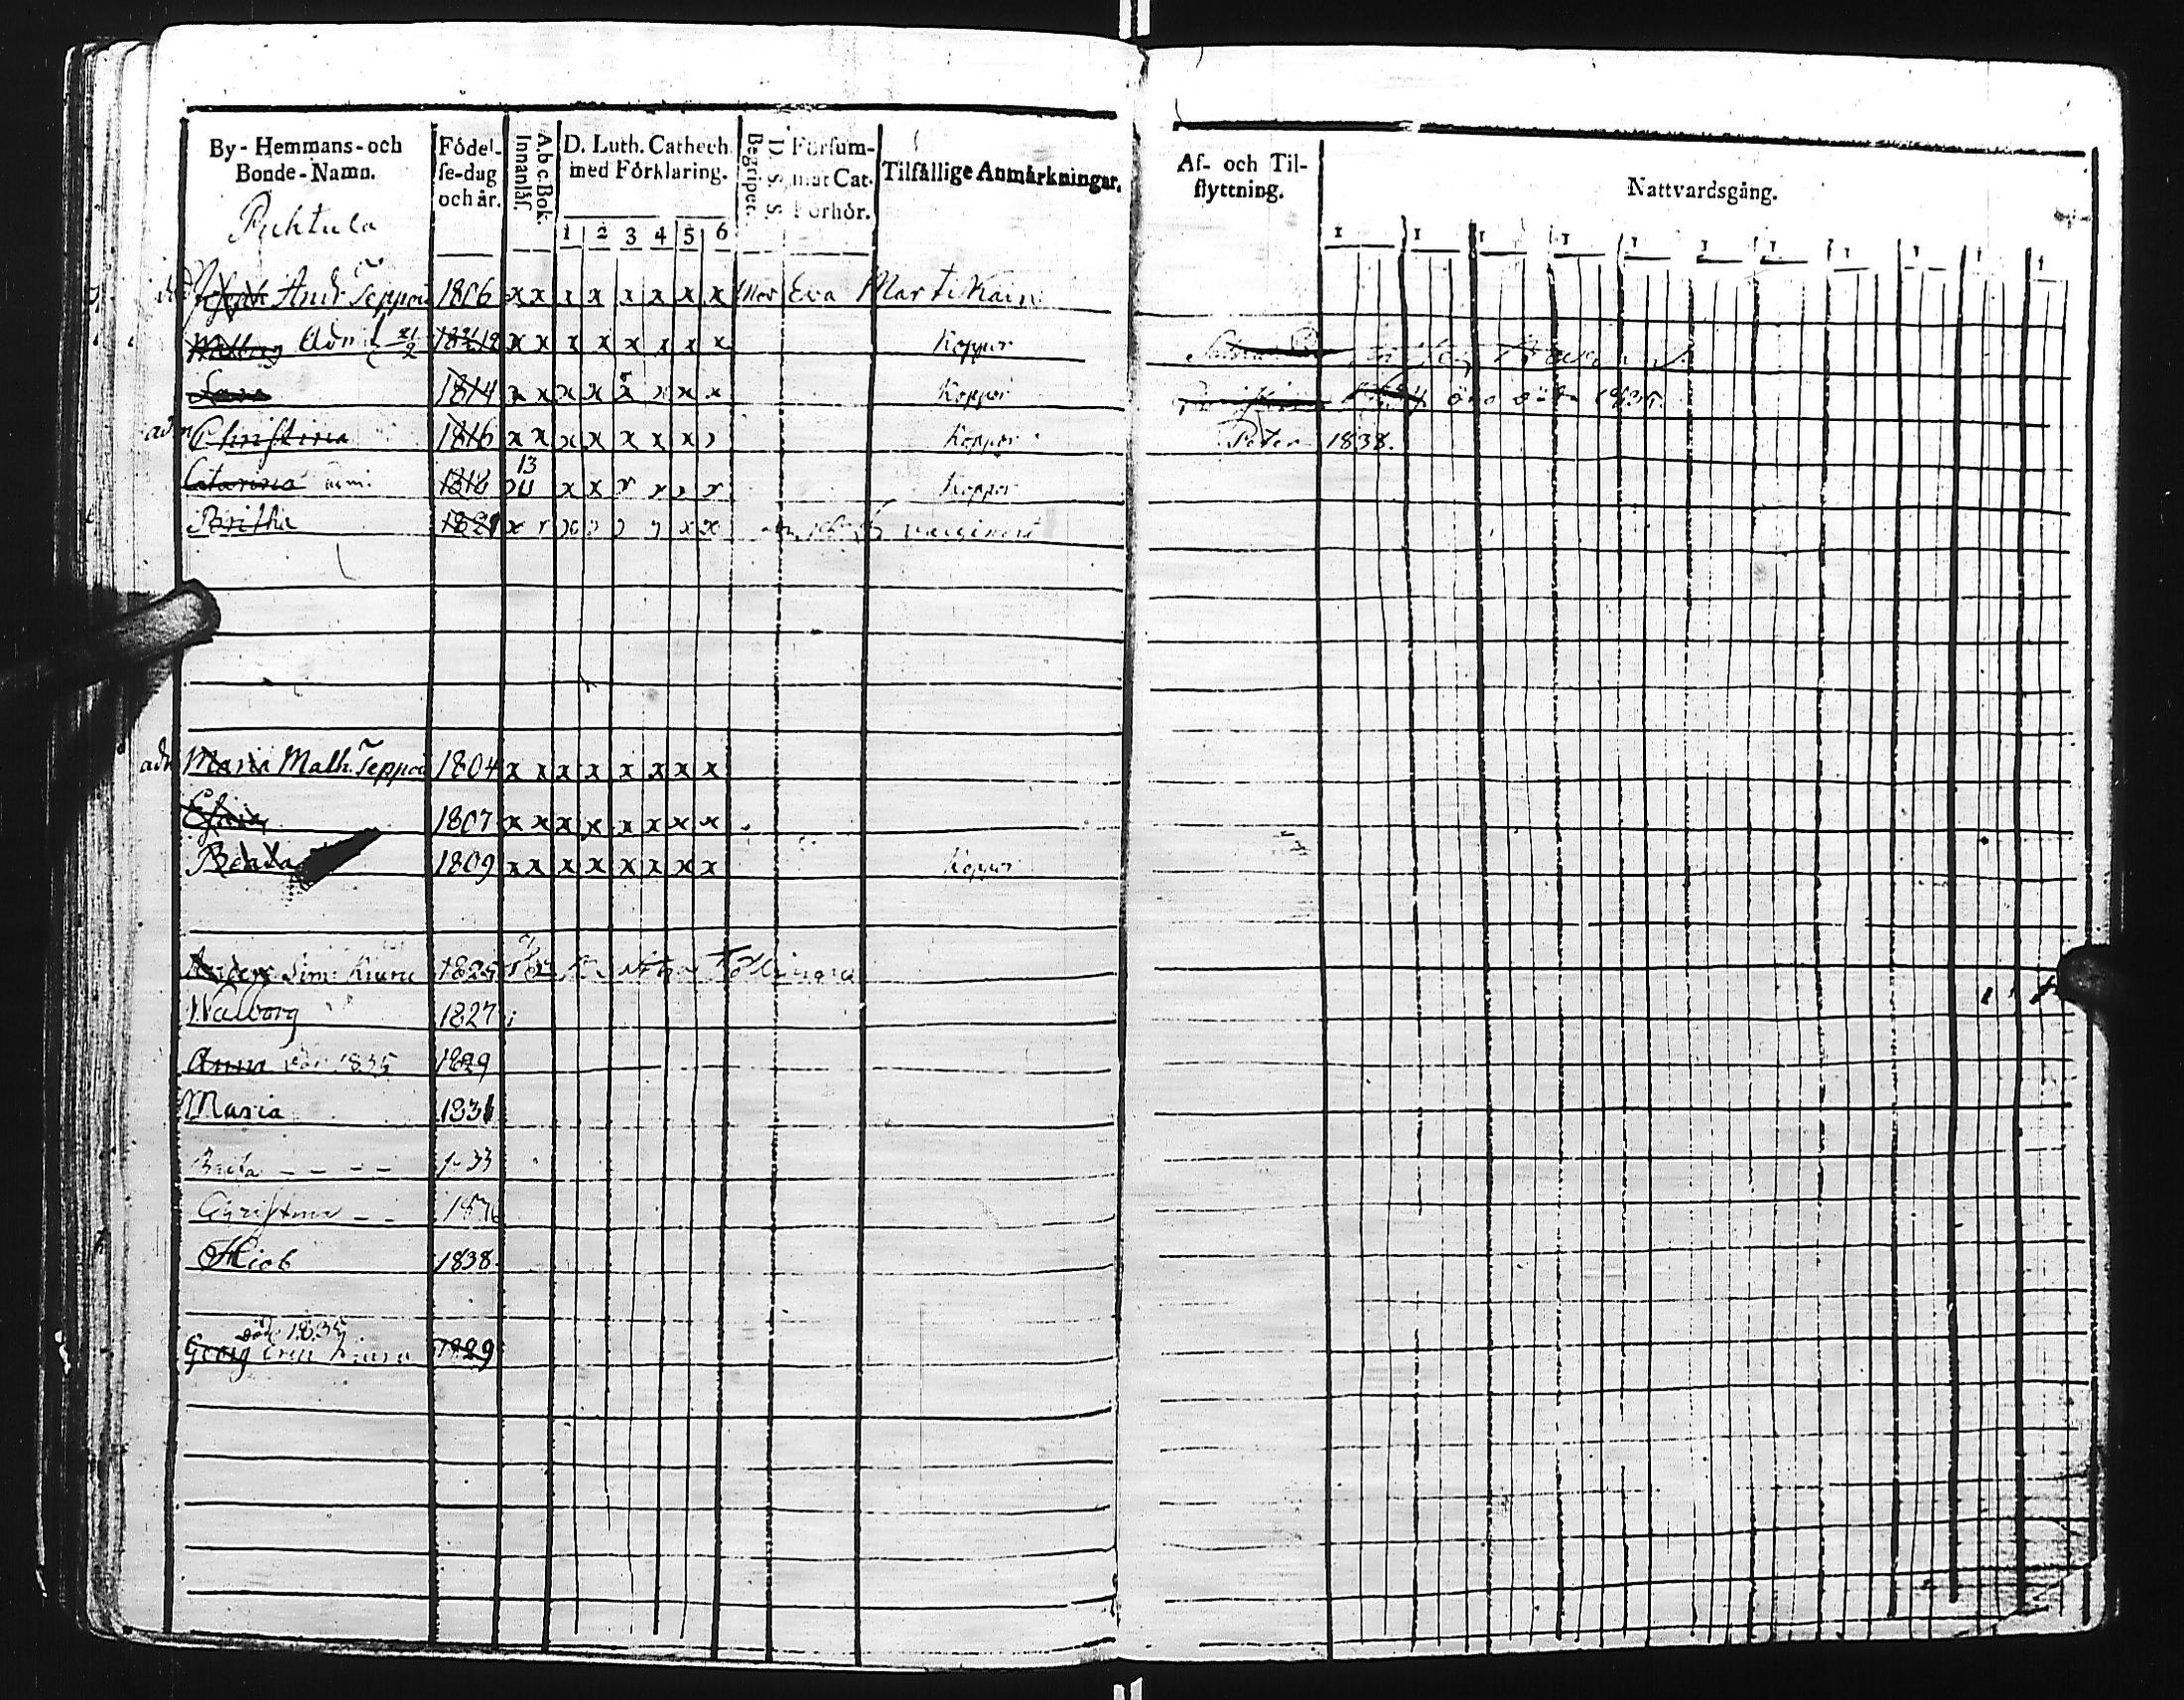 By-Hemmans-och Bonde-Namn.
Födel-se-dag och år.
Innanläs. A.b.c.Bok.
D. Luth. Cathech. med Förklaring.
1 2 3 4 5 6
Begriper. D. S. S.
Försum-mat Cat. Förhör.
Tilfällige Anmärkningar.
Af- och Til-flyttning.
Nattvardsgång.
1 1 1 1 1 1 1 1 1 1 1
Puhtula
Andr Teppoi 1806 x x x x x x x x Mor Eva Martikain
Walborg 1812 x x x x x x x x Koppor
Sara 1814 x x x x x x x x Koppor
1835
adm Christina 1816 x x x x x x x x Koppor
Peter 1838.
13
Catarina adm. 1818 x x x x x x Koppor
Britha 1821 x x x x x x x x vaccinerat
adm Maria Math. Teppoi 1804 x x x x x x x x
1807 x x x x x x x x
Beata 1809 x x x x x x x x Koppor
Anders Sim. Kiuru 1825
Walborg 1827
Anna död 1835 1829
Maria 1831
Brita - - - - 1-33
Christina - -
Hiob 1838
död 1835
Georg Kiuru 1829